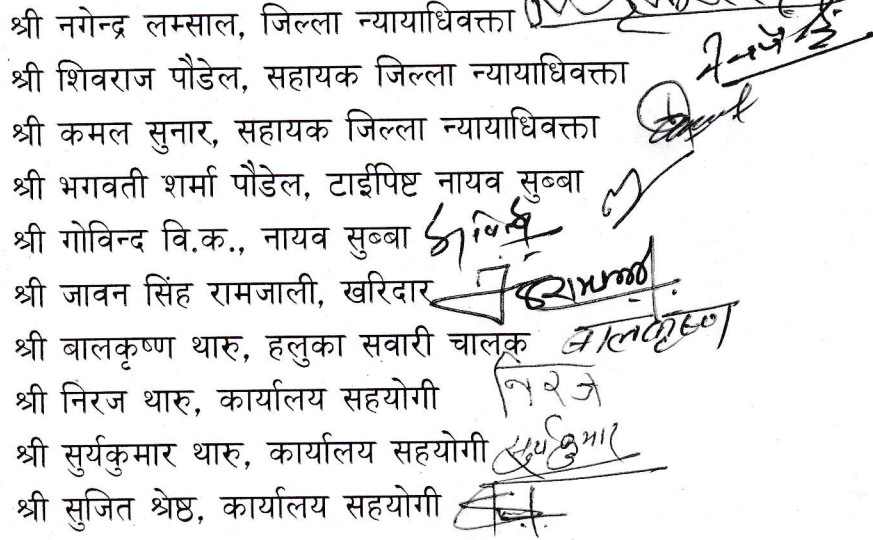 श्री नगेन्द्र लम्साल, जिल्ला न्यायाधिवक्ता
श्री शिवराज पौडेल, सहायक जिल्ला न्यायाधिवक्ता
श्री कमल सुनार, सहायक जिल्ला न्यायाधिवक्ता
श्री भगवती शर्मा पौडेल, टाईपिष्ट नायव सुब्बा
श्री गोविन्द वि.क., नायव सुब्बा
श्री जावन सिंह रामजाली, खरिदार
श्री बालकृष्ण थारु, हलुका सवारी चालक बालकृष्ण
श्री निरज थारु, कार्यालय सहयोगी निरज
श्री सुर्यकुमार थारु, कार्यालय सहयोगी सुर्यकुमार
श्री सुजित श्रेष्ठ, कार्यालय सहयोगी